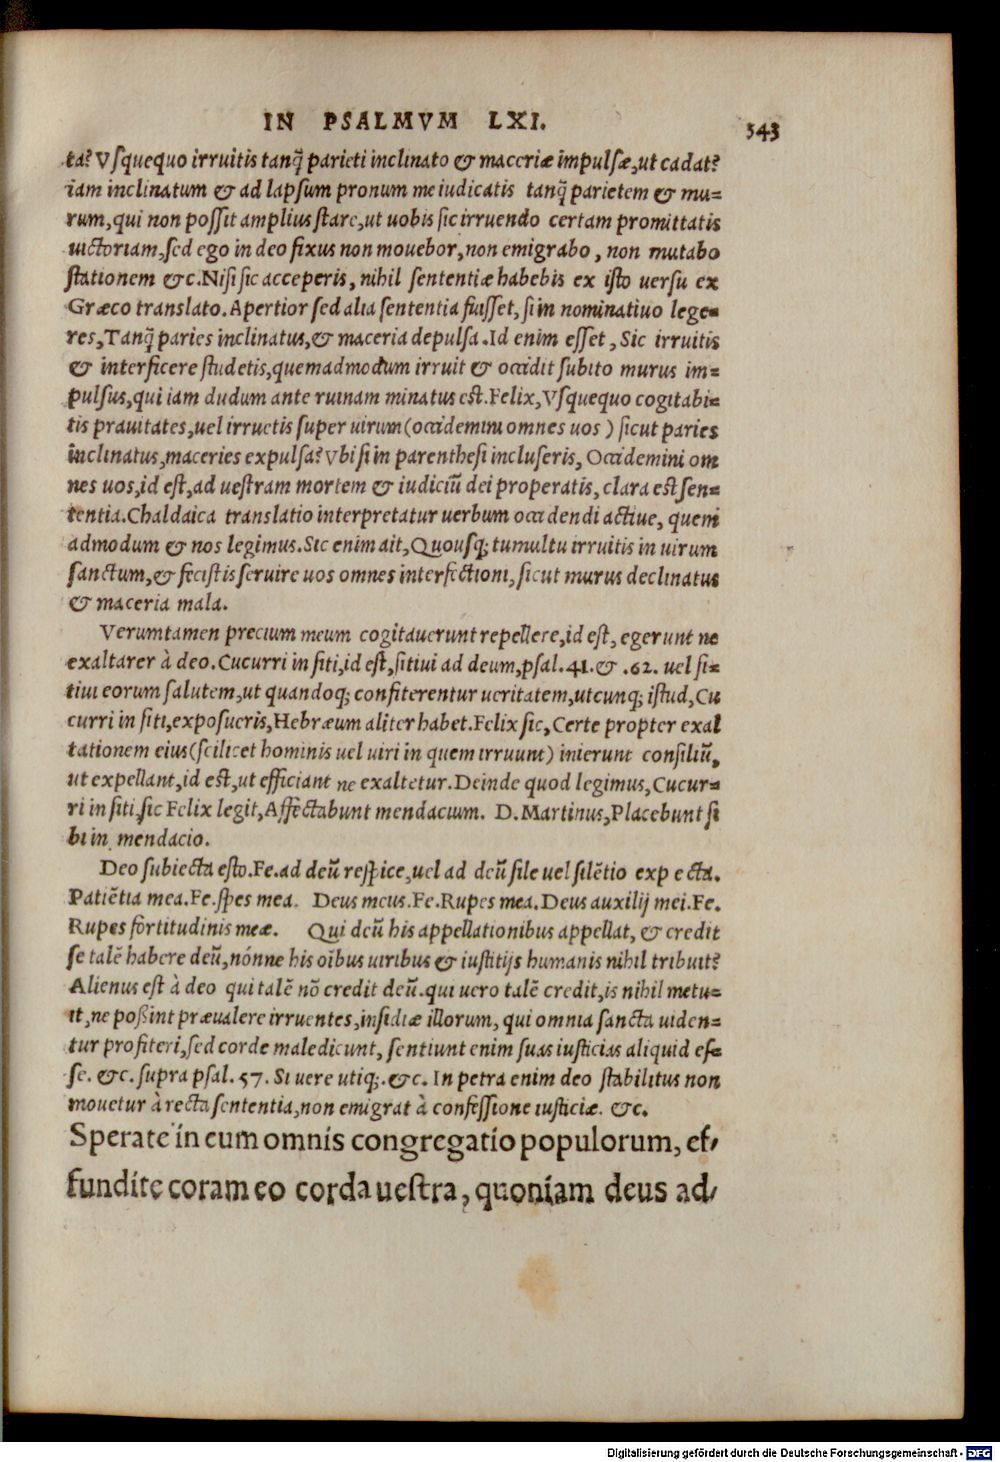 IN PSALMVM LXI.
343
ta? Vsquequo irruitis tanq̃ parieti inclinato & maceriæ impulsæ,ut cadat?
iam inclinatum & ad lapsum pronum me iudicatis tanq̃ parietem & mu=
rum,qui non possit amplius stare,ut uobis sic irruendo certam promittatis
uictoriam,sed ego in deo fixus non mouebor,non emigrabo, non mutabo
stationem &c.Nisi sic acceperis, nihil sententiæ habebis ex isto uersu ex
Græco translato.Apertior sed alia sententia fuisset, si in nominatiuo lege=
res,Tanq̃ paries inclinatus,& maceria depulsa.Id enim esset, Sic irruitis
& interficere studetis,quemadmodum irruit & occidit subito murus im=
pulsus,qui iam dudum ante ruinam minatus est.Felix,Vsquequo cogitabi=
tis prauitates,uel irruetis super uirum(occidemini omnes uos) sicut paries
inclinatus,maceries expulsa? Vbi si in parenthesi incluseris, Occidemini om
nes uos,id est,ad uestram mortem & iudiciũ dei properatis, clara est sen=
tentia.Chaldaica translatio interpretatur uerbum occidendi actiue, quem
admodum & nos legimus.Sic enim ait,Quousq; tumultu irruitis in uirum
sanctum,& fecistis seruire uos omnes interfectioni, sicut murus declinatus
& maceria mala.
Verumtamen precium meum cogitauerunt repellere,id est, egerunt ne
exaltarer à deo.Cucurri in siti,id est,sitiui ad deum,psal.41.& .62. uel si=
tiui eorum salutem,ut quandoq; confiterentur ueritatem,utcunq; istud,Cu
curri in siti,exposueris,Hebræum aliter habet.Felix sic, Certe propter exal
tationem eius(scilicet hominis uel uiri in quem irruunt) inierunt consiliũ,
ut expellant,id est,ut efficiant ne exaltetur.Deinde quod legimus,Cucur=
ri in siti,sic Felix legit,Affectabunt mendacium. D.Martinus,Placebunt si
bi in mendacio.
Deo subiecta esto.Fe.ad deũ respice,uel ad deũ sile uel silẽtio expecta.
Patiẽtia mea.Fe.spes mea. Deus meus.Fe.Rupes mea.Deus auxilij mei.Fe.
Rupes fortitudinis meæ. Qui deũ his appellationibus appellat, & credit
se talẽ habere deũ,nónne his oĩbus uiribus & iustitijs humanis nihil tribuit?
Alienus est à deo qui talẽ nõ credit deũ.qui uero talẽ credit,is nihil metu=
it,ne poßint præualere irruentes,insidiæ illorum, qui omnia sancta uiden=
tur profiteri,sed corde maledicunt, sentiunt enim suas iusticias aliquid es=
se. &c. supra psal.57. Si uere utiq;.&c. In petra enim deo stabilitus non
mouetur à recta sententia,non emigrat à confessione iusticiæ. &c.
Sperate in eum omnis congregatio populorum, ef/
fundite coram eo corda uestra, quoniam deus ad/
Digitalisierung gefördert durch die Deutsche Forschungsgemeinschaft - DFG